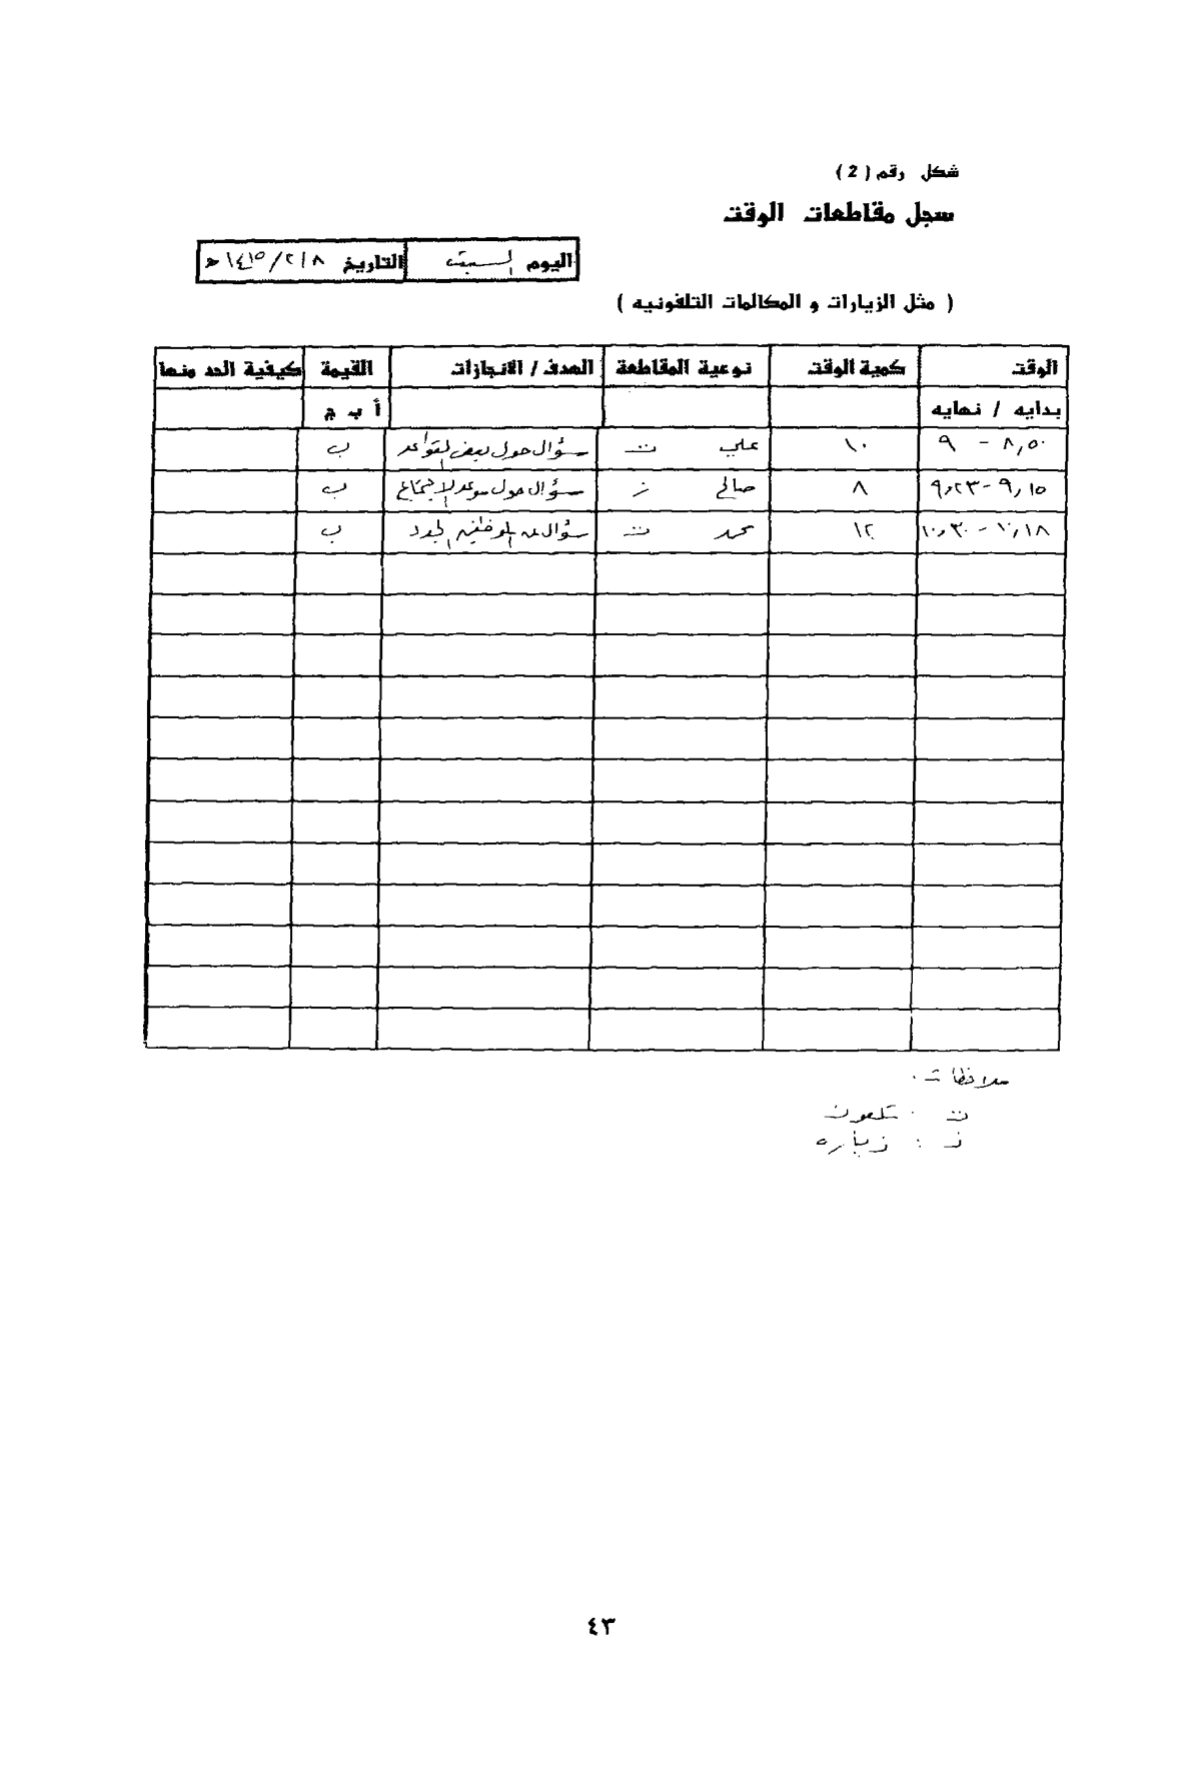 شكل رقم ( 2 )
سجل مقاطعات الوقت
اليوم السبت التاريخ ٨/٢/١٤١٥ هـ
( مثل الزيارات و المكالمات التلفونيه )
الوقت كمية الوقت نوعية المقاطعة الهدف / الانجازات القيمة كيفية الحد منها
بدايه / نهايه أ ب ج
٨,٥٠ - ٩ ١٠ علي ت سؤال حول بعض القواعد ب
٩,١٥ - ٩,٢٣ ٨ صالح ز سؤال حول موعد الاجتماع ب
١٠,١٨ - ١٠,٣٠ ١٢ محمد ت سؤال عن الموظفين الجدد ب
ملاحظات .
ت : تلفون
ز : زياره
٤٣